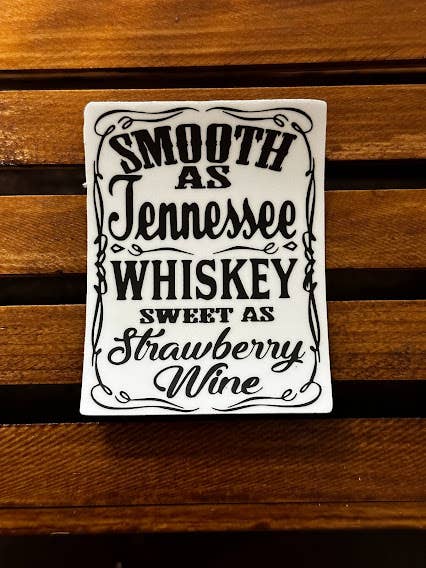 SMOOTH
AS
Tennessee
WHISKEY
SWEET AS
Strawberry
Wine